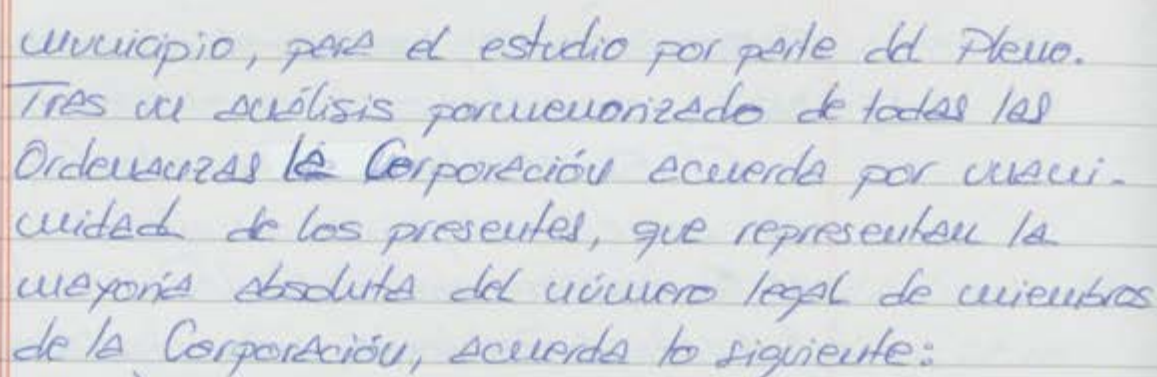 municipio, para el estudio por parte del Pleno.
Tras un análisis pormenorizado de todas las
Ordenanzas la Corporación acuerda por unani-
midad de los presentes, que representan la
mayoría absoluta del número legal de miembros
de la Corporación, acuerda lo siguiente: